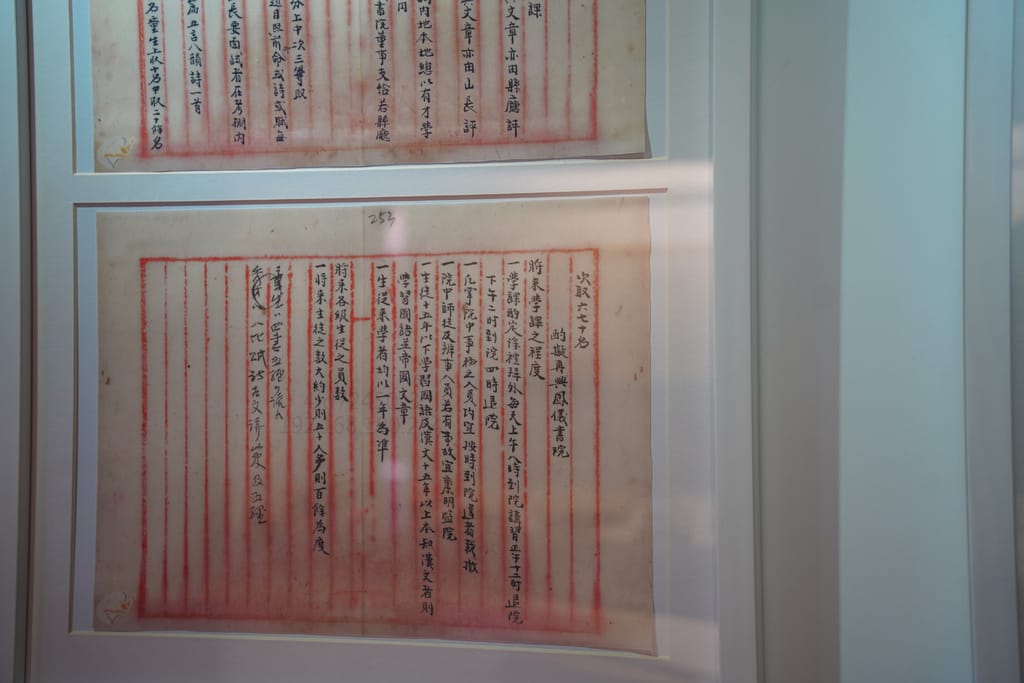 課
文章亦由縣廳評
文章亦由山長評
内地本地總以有才學
円
書院董事支給若縣廳
分上中次三等取
題目照前命或詩或賦每
長要面試者在考棚内
五言八韻詩一首
名童生上取十名中取二十餘名
253
次取六七十名
酌擬再興鳳儀書院
將來學課之程度
一學課酌定除禮拜外每天上午八時到院講習正午十二時退院
下午二時到院四時退院
一凡掌院中事務之人員均宜按時到院違者裁撤
一院中師徒及辨事人員若有事故宜稟明監院
一生徒十五年以下學習國語及漢文十五年以上本知漢文者則
學習國語並帝國文章
一生徒來學者均以一年為準
將來各級生徒之員數
一將來生徒之數大約少則五十人多則百餘為度
童生 四書五經
八比試詩古文 策及五經